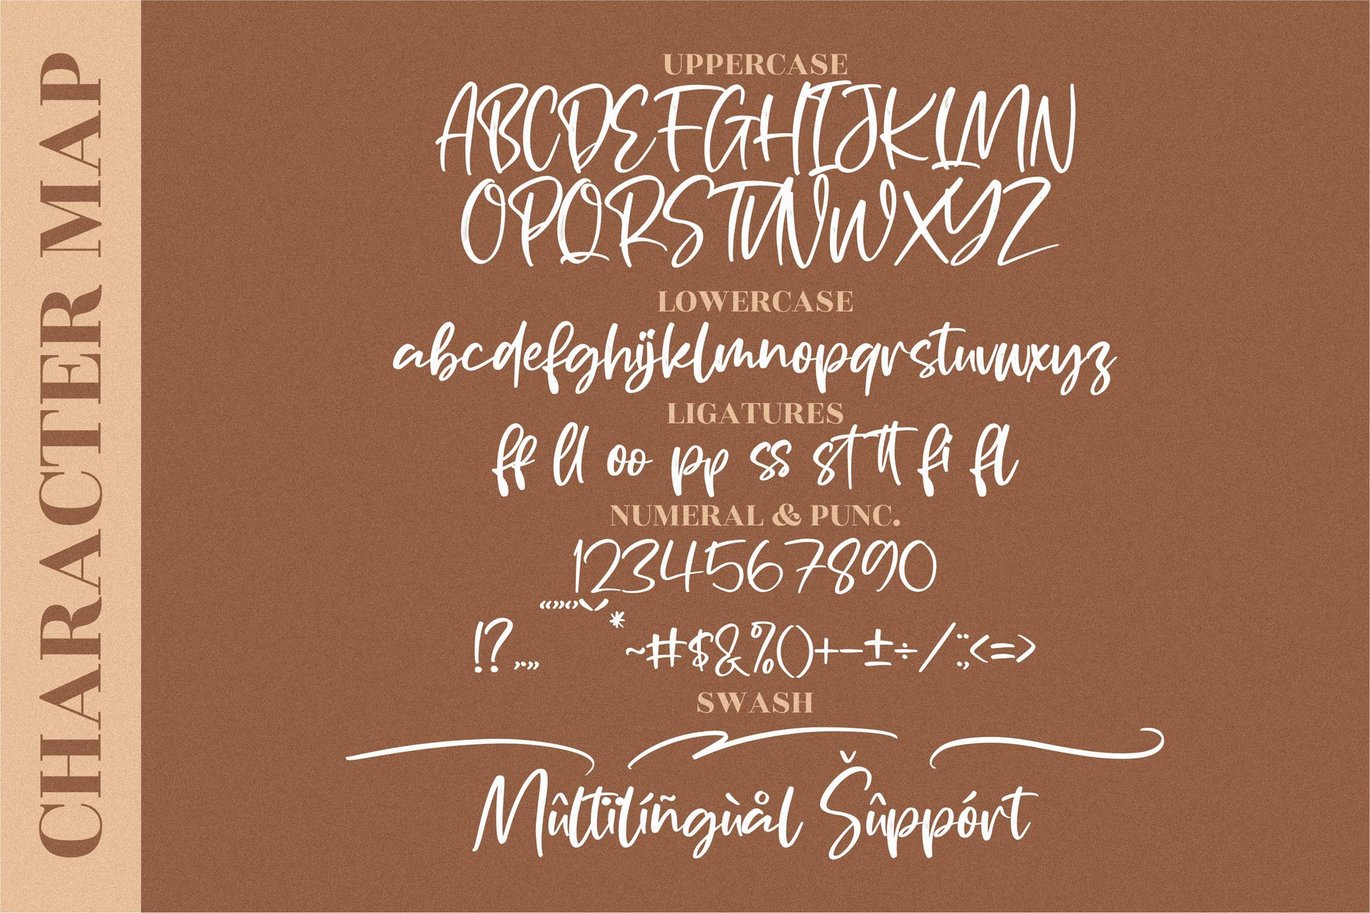 CHARACTER MAP
UPPERCASE
ABCDEFGHIJKLMN
OPQRSTUVWXYZ
LOWERCASE
abcdefghijklmnopqrstuvwxyz
LIGATURES
ff ll oo pp ss st tt fi fl
NUMERAL & PUNC.
1234567890
!? * ~#$&%()+−±÷/:;<=>
SWASH
Mûltïlíñgùål Šûppórt